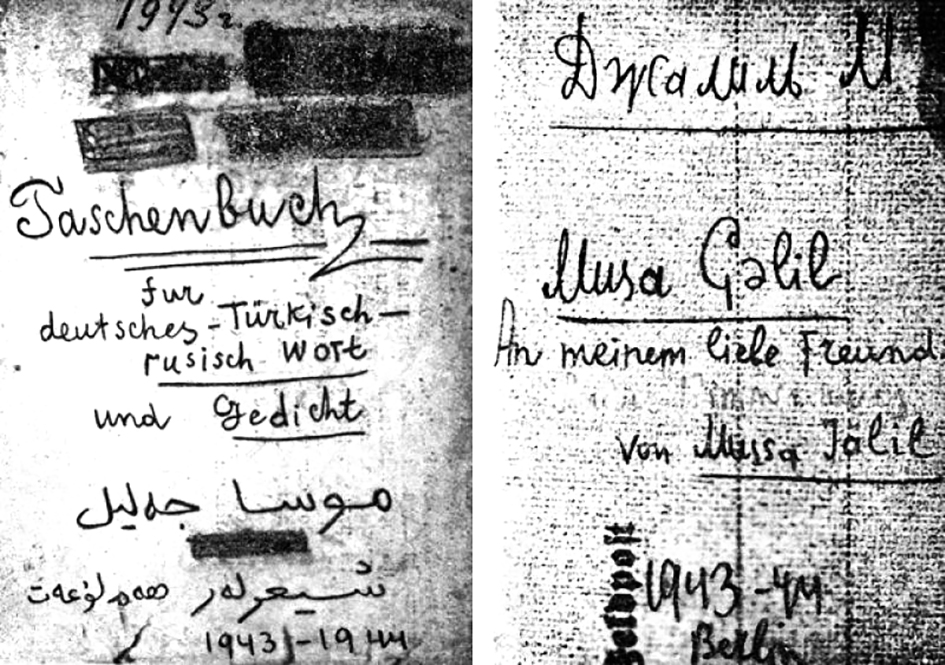 1943 г.
Taschenbuch
fur
deutsches-Türkisch-
rusisch Wort
und Gedicht
موسا جەلیل
شیعرلەر هەم لوعەت
1943-1944
Джалиль М.
Musa Gəlil
An meinem liebe Freund
von Mussa Jälil
Feldpost
1943-44
Berlin